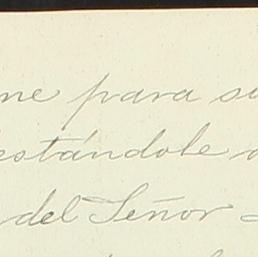 ne para su
estándole a
del Señor